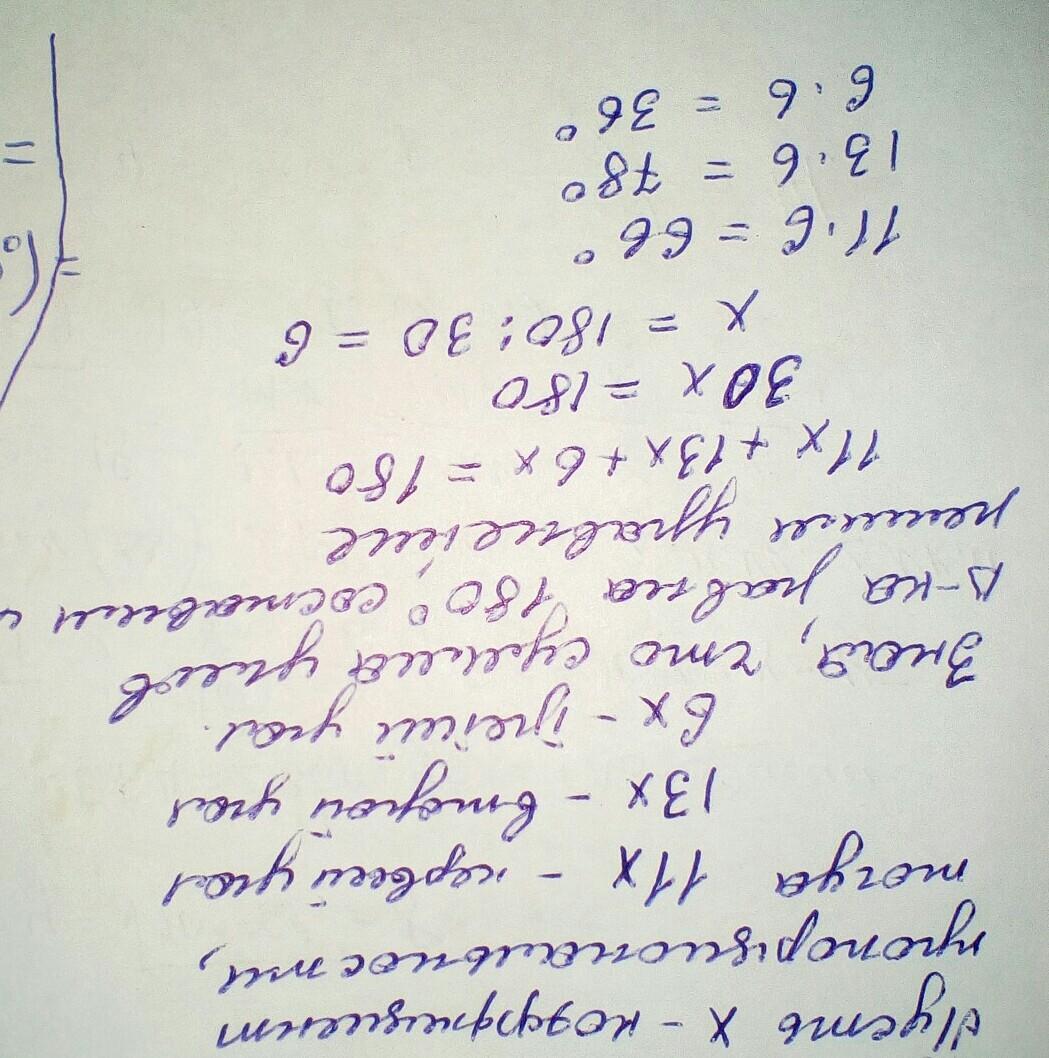 Пусть x - коэффициент
пропорциональности,
тогда 11x - первый угол
13x - второй угол
6x - третий угол.
Зная, что сумма углов
Δ-ка равна 180°, составим и
решим уравнение
11x + 13x + 6x = 180
30x = 180
x = 180 : 30 = 6
11 · 6 = 66°
13 · 6 = 78°
6 · 6 = 36°
=
°)
=